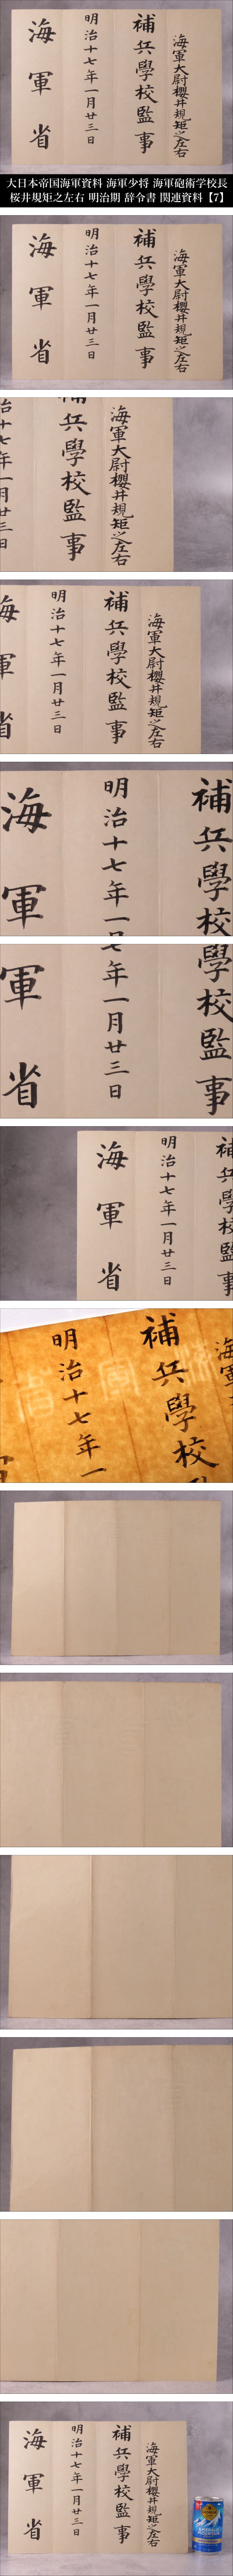 海軍大尉櫻井規矩之左右
補兵學校監事
明治十七年一月廿三日
海軍省
大日本帝国海軍資料 海軍少将 海軍砲術学校長
桜井規矩之左右 明治期 辞令書 関連資料【7】
海軍大尉櫻井規矩之左右
補兵學校監事
明治十七年一月廿三日
海軍省
海軍大尉櫻井規矩之左右
補兵學校監事
治十七年一月廿三日
海軍大尉櫻井規矩之左右
補兵學校監事
明治十七年一月廿三日
海軍省
補兵學校
明治十七年一月
海軍
學校監事
七年一月廿三日
軍省
補兵學校監事
明治十七年一月廿三日
海軍省
海軍
補兵學校
明治十七年一
海軍大尉櫻井規矩之左右
補兵學校監事
明治十七年一月廿三日
海軍省
EMERALD
MOUNTAIN